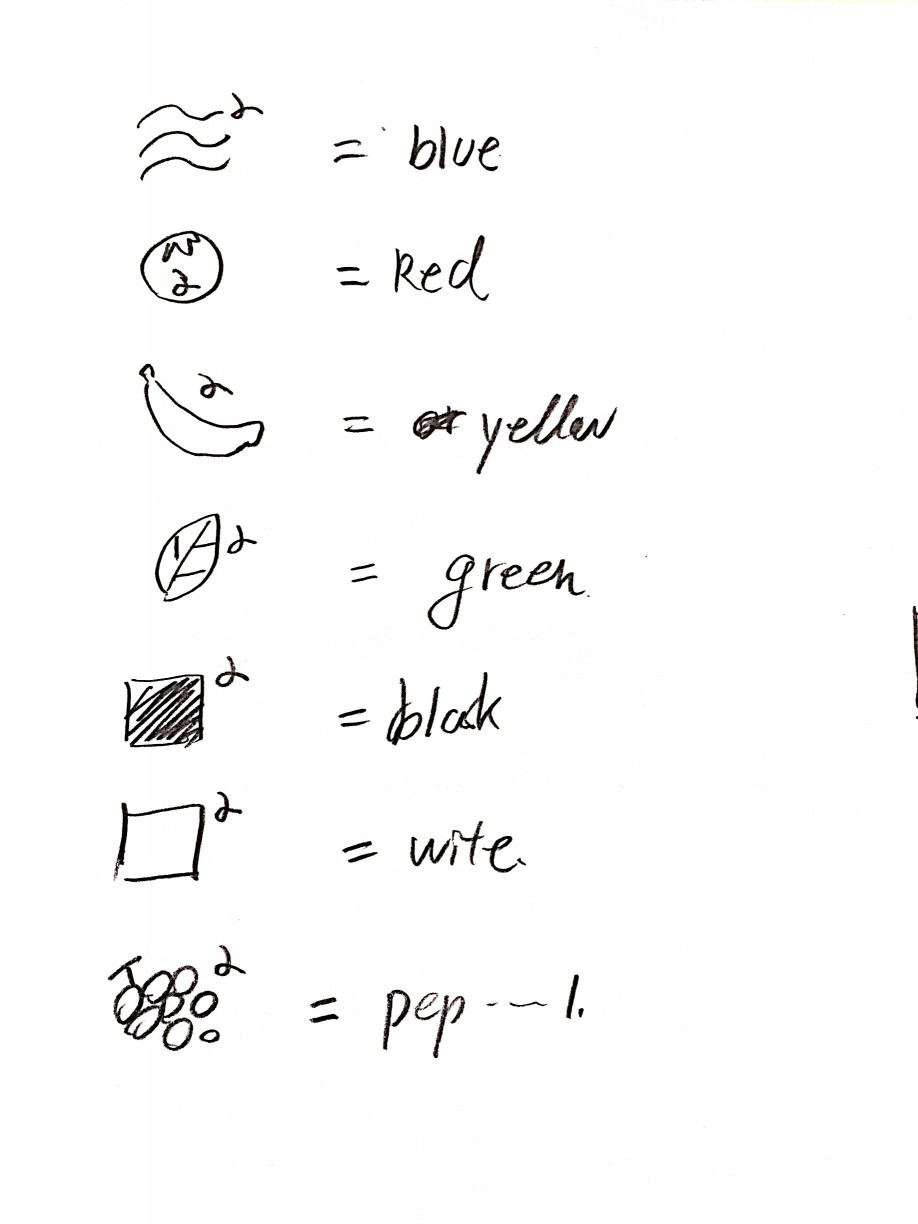 = blue
= Red
= yellow
= green.
= blak
= wite.
= pep---l.